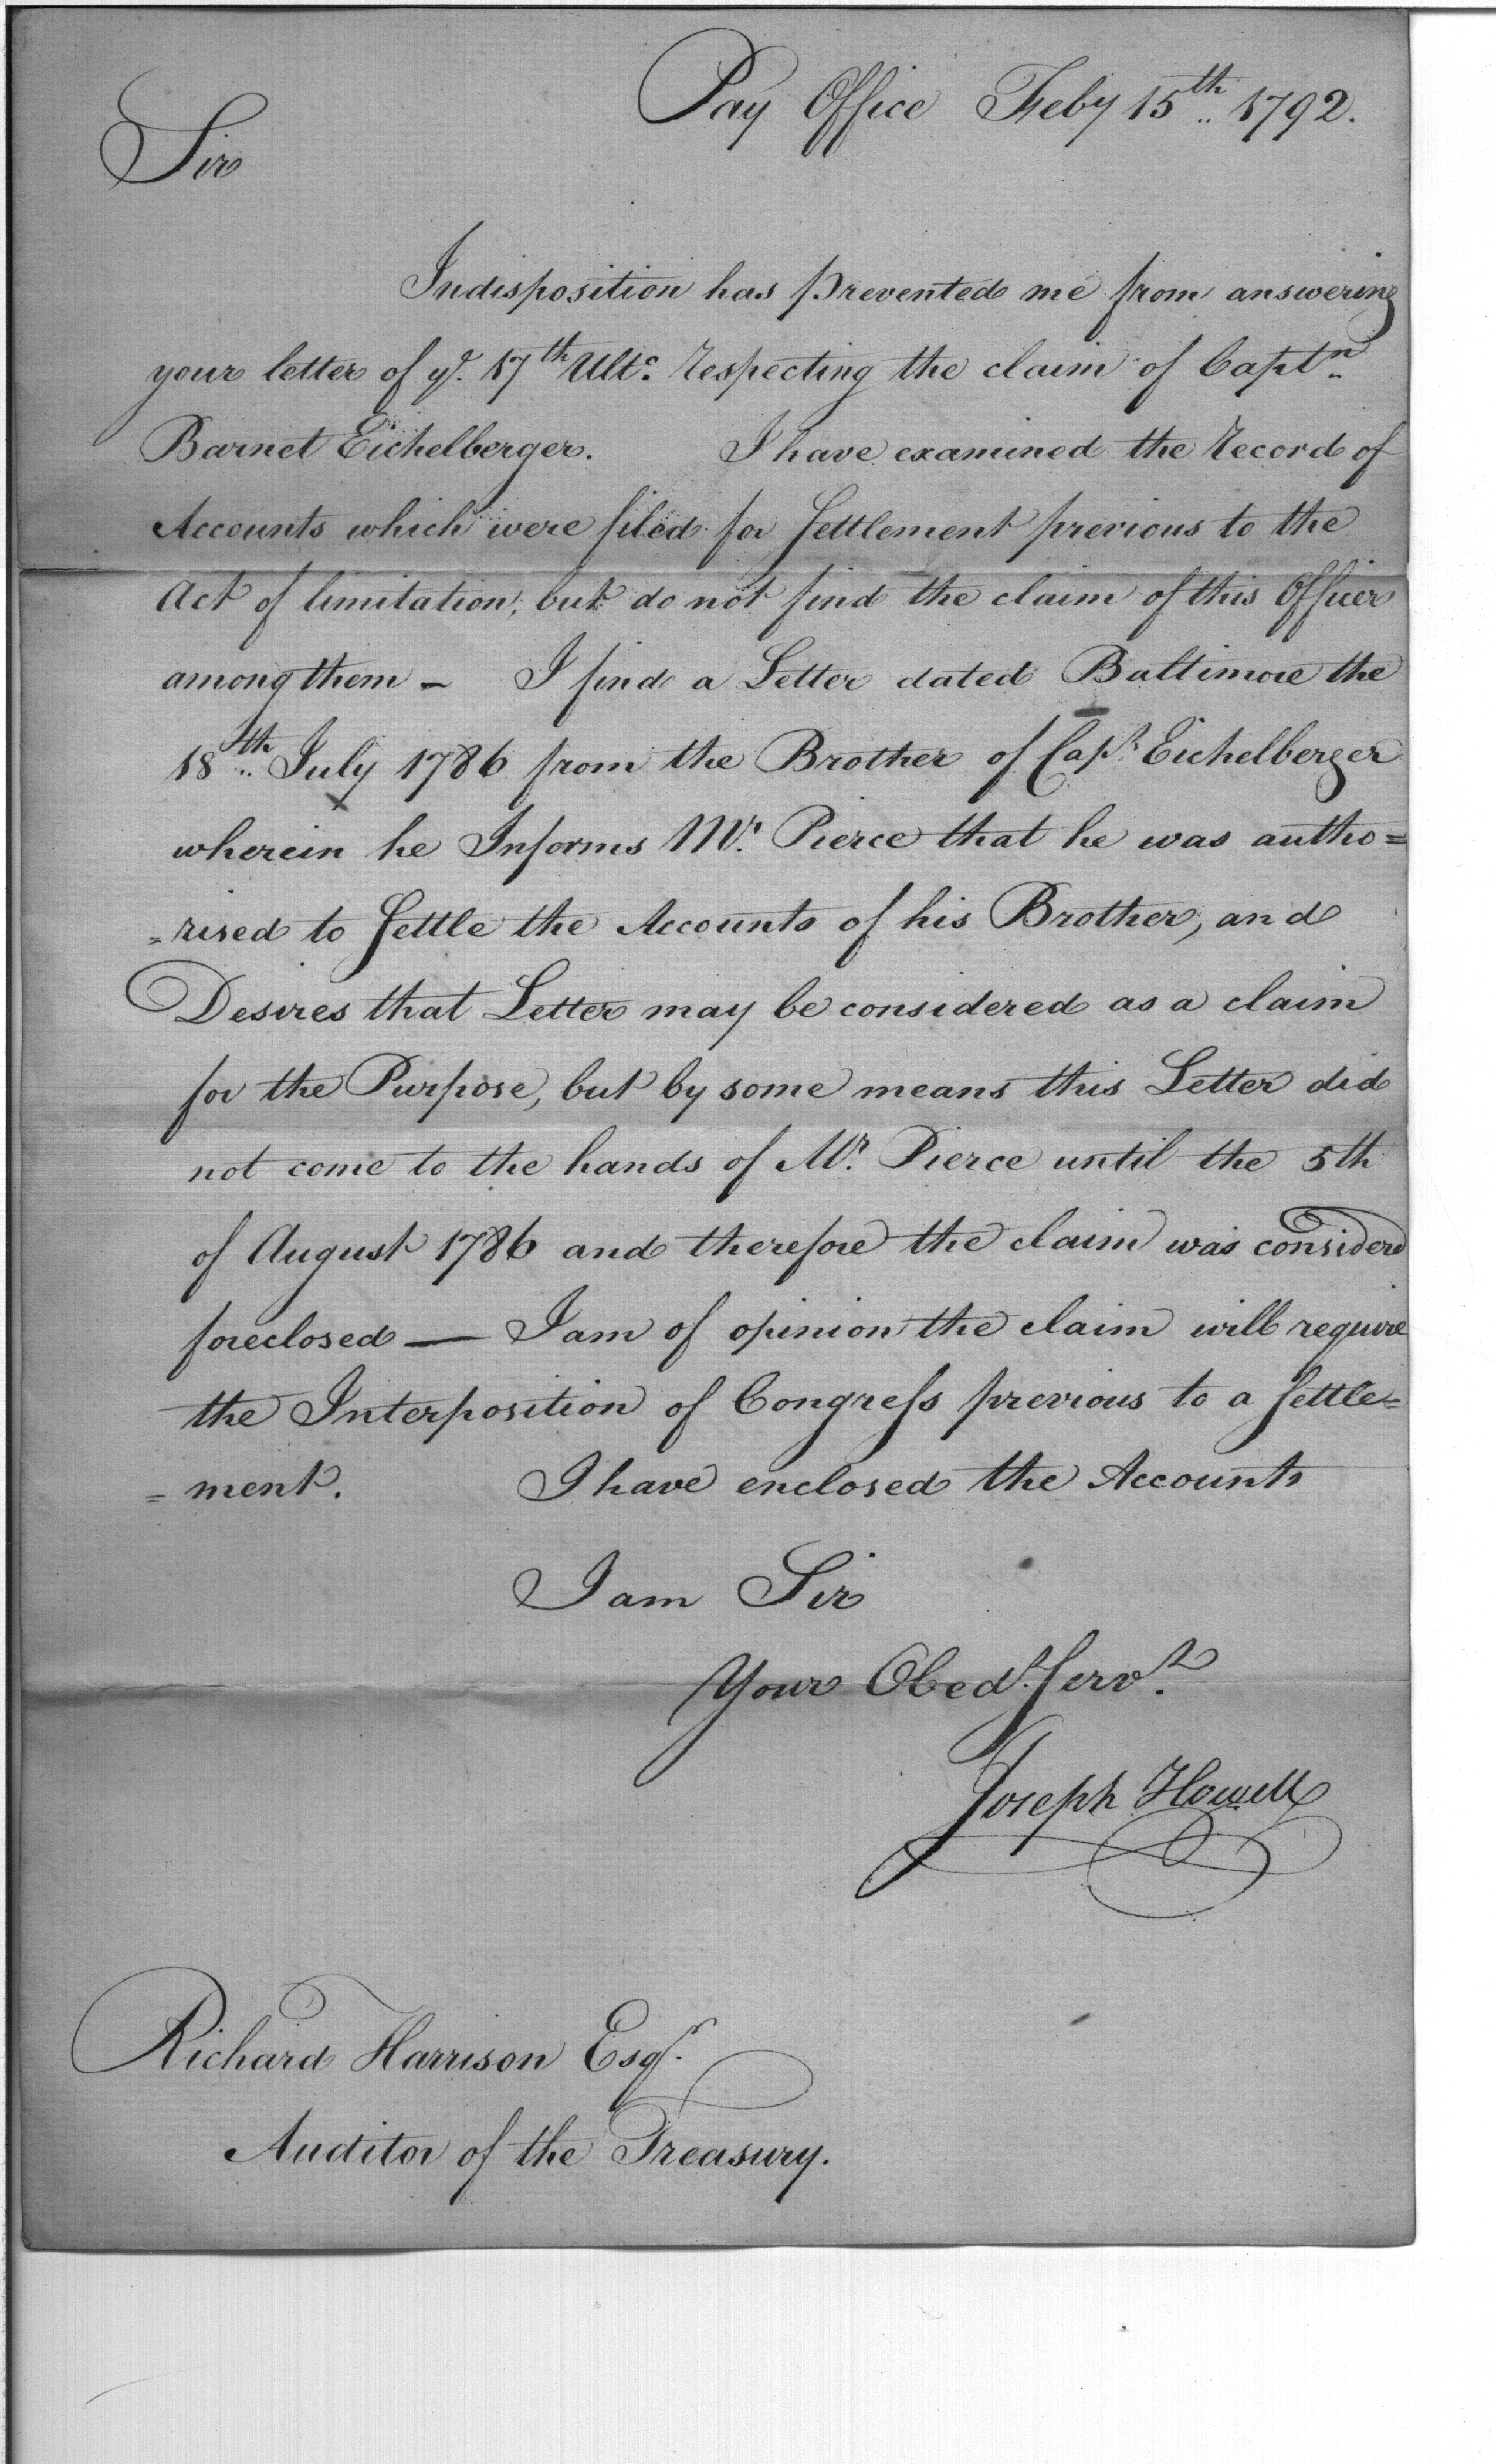 Pay Office Feby 15th 1792.
Sir
Indisposition has prevented me from answering
your letter of ye. 17th Ulto. respecting the claim of Captn
Barnet Eichelberger. I have examined the record of
Accounts which were filed for Settlement previous to the
Act of limitation, but do not find the claim of this Officer
among them – I find a Letter dated Baltimore the
18th July 1786 from the Brother of Capt. Eichelberger
wherein he Informs Mr. Pierce that he was autho=
=rised to Settle the Accounts of his Brother, and
Desires that Letter may be considered as a claim
for the Purpose, but by some means this Letter did
not come to the hands of Mr. Pierce until the 5th
of August 1786 and therefore the claim was considerd
foreclosed — I am of opinion the claim will require
the Interposition of Congress previous to a Settle=
=ment. I have enclosed the Accounts
I am Sir
Your Obedt. Servt.
Joseph Howell
Richard Harrison Esqr.
Auditor of the Treasury.